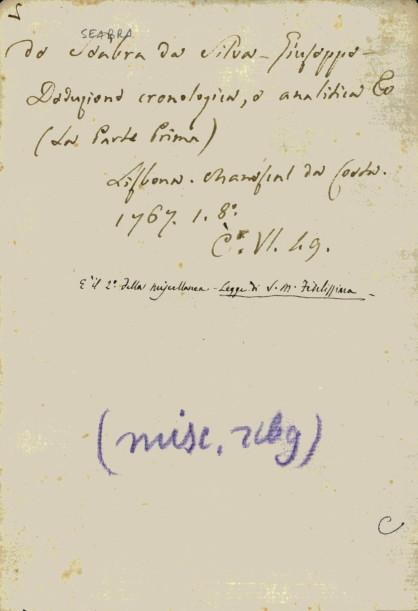 S
SEABRA
de Seabra da Silva - Giuseppe -
Deduzione cronologica, e analitica &c
(La Parte Prima)
Lisbona. Manescal da Costa.
1767. 1. 8°.
VI. 49.
È il 2° della miscellanea - Legge di S. M. Fedelissima -
(misc, rleg)
C